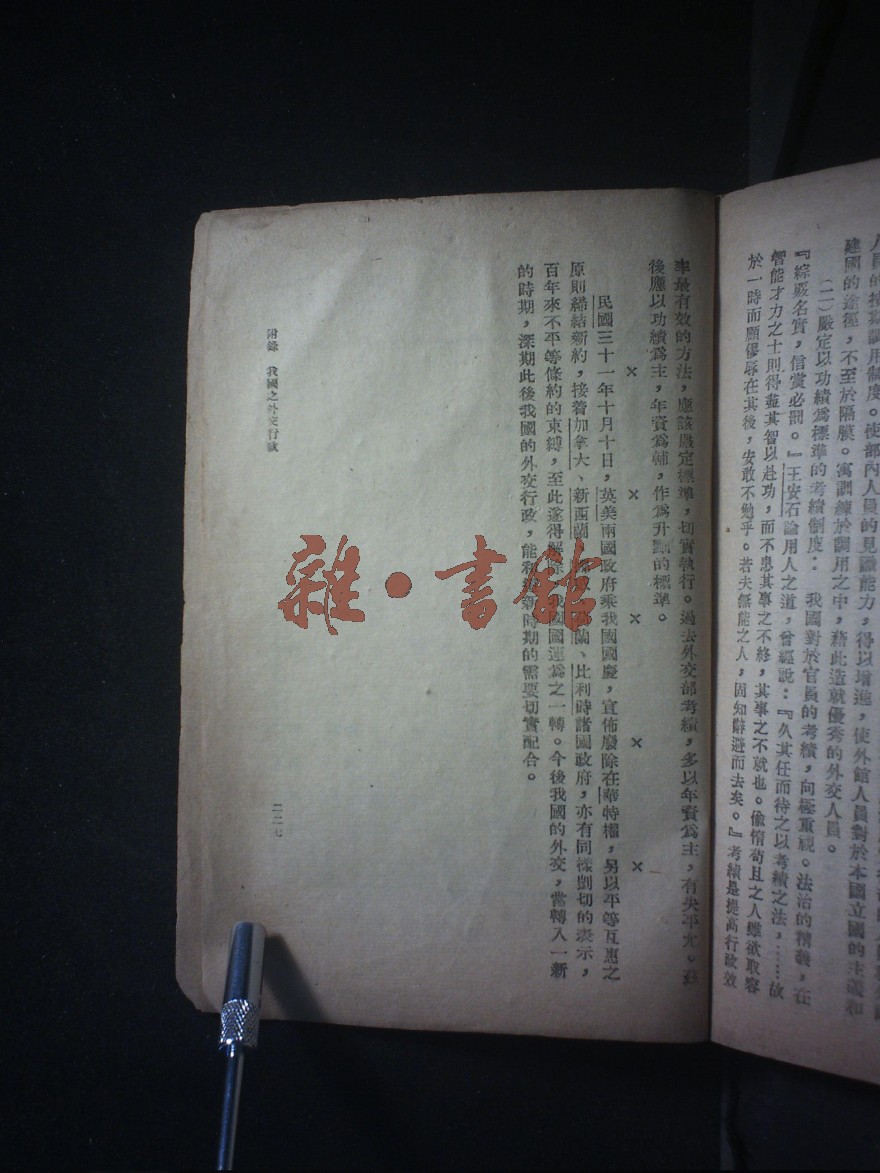 人員的
建國的途徑，不至於隔膜。寓訓練於調用之中，藉此造就優秀的外交人員。
（二）嚴定以功績爲標準的考績制度： 我國對於官員的考績，向極重視。法治的精義，在
『綜覈名實，信賞必罰。』王安石論用人之道，曾經說：『久其任而待之以考績之法，……故
智能才力之士則得盡其智以赴功，而不患其事之不終，其事之不就也。偷惰苟且之人雖欲取容
於一時而顧僇辱在其後，安敢不勉乎。若夫無能之人，固知辭避而去矣。』考績是提高行政效
率最有效的方法，應該嚴定標準，切實執行。過去外交部考績，多以年資爲主，有失平允。
後應以功績爲主，年資爲輔，作爲升黜的標準。
× × × × ×
民國三十一年十月十日，英美兩國政府乘我國國慶，宣佈廢除在華特權，另以平等互惠之
原則締結新約，接着加拿大、新西蘭、蘭、比利時諸國政府，亦有同樣剴切的表示，
百年來不平等條約的束縛，至此遂得解除，我國國運爲之一轉。今後我國的外交，當轉入一新
的時期，深期此後我國的外交行政，能和這新時期的需要切實配合。
附錄 我國之外交行政
二二七
雜·書館